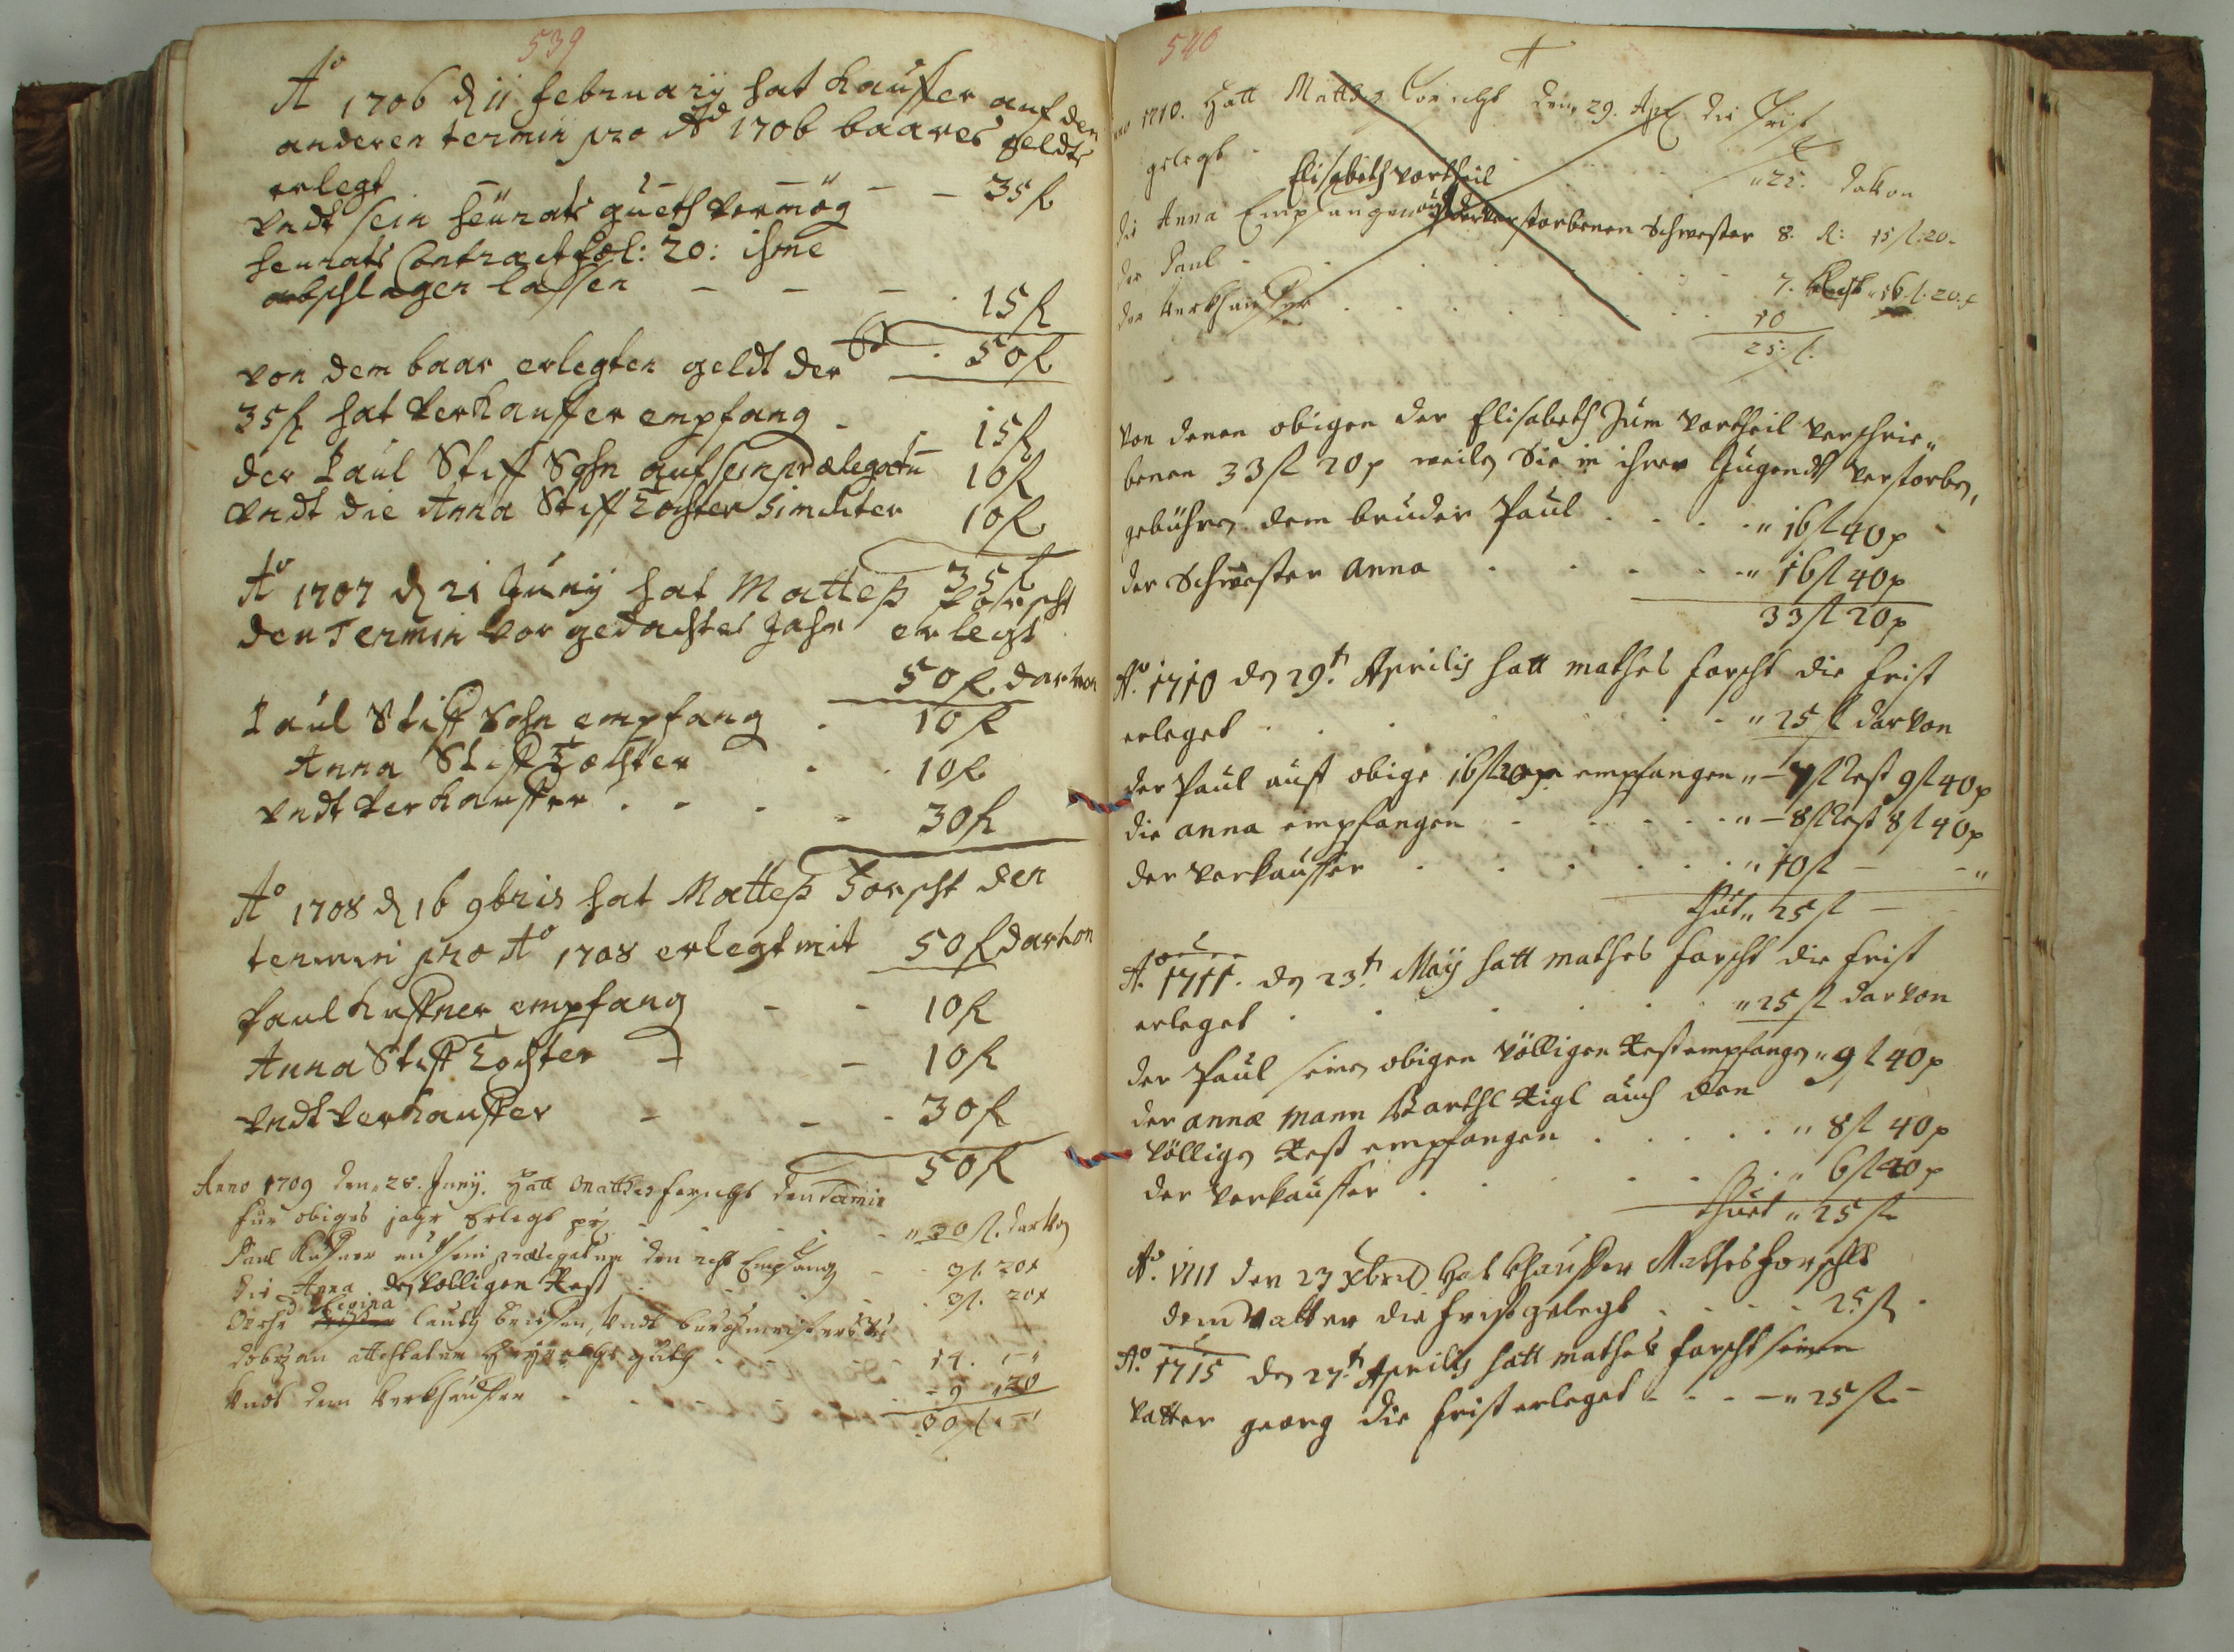 539
Aº 1706 d 11 february hat Kauffer auf den
anderen termin pro Aº 1706 baares geldt
erlegt - - - - - 35 f
Vndt sein heürats gueth vermög
heurats Contract fol: 20: ihme
abschlagen lassen - - - 15 f
50 f
von dem baar erlegten geldt der
35 f hat verkauffer empfang - - 15 f
der Paul Stiff Sohn auf sein prælegatu 10 f
Vndt die Anna Stiff Tochter 10 f
35 f
Aº 1707 d 21 Juny hat Matteß Forscht
den Termin vor gedachtes Jahr erlegt
50 f. darvon
Paul Stiff Sohn empfang . 10 f
Anna Stiff Tochter . . 10 f
Vndt verkauffer . - - - 30 f
Aº 1708 d 16 9bris hat Matteß Forscht den
termin pro Aº 1708 erlegt mit 50 f darvon
Paul Kuffner empfang - - 10 f
Anna Stiff Tochter - - 10 f
Vndt verkauffer - - - 30 f
50 f
Anno 1709 den 28. Juny. Hatt Matthes forscht den Termin
für obiges jahr Erlegt 30 f. darvon
Paul Kuffner auf sein prælegatum den rest Empfang - 3 f. 20 x
die Anna den völligen Rest . . 3 f. 20 x
Regina
attestatum
14. - "
Vndt dem verkhauffer . . - 9 " 20
30 f - "
540
1710. Hatt Matthes Forscht den 29. Apr. die Frist
gelegt . . . . " 25. davon
Elisabeth vortheil
die Anna Empfangen verstorbenen Schwester 8. R: 15 f. 20.
der Paul - . . . 7. Rest 16 f. 20 x
der verkhauffer . . . . 10
25. f.
Von denen obigen der Elisabeth Zum vortheil verschrie„
benen 33 f 20 p weilen Sie in ihrer Jugendt verstorben,
gebühren dem bruder Paul . . . . " 16 f 40 p
der Schwester Anna . . . . " 16 f 40 p
33 f 20 p
Aº. 1710 den 29.t Aprilis hatt mathes forscht die frist
erleget . . . . " 25 f darvon
der Paul auff obige 16 f 40 p empfangen " - 7 f Rest 9 f 40 p
die anna empfangen . . . . " - 8 f Rest 8 f 40 p
der verkauffer . . . . " 10 f - - "
thut " 25 f -
Aº. 1711. den 23.t Maÿ hatt mathes forscht die frist
erleget . . . . " 25 f darvon
der Paul seinen obigen völligen Rest empfangen " 9 f 40 p
der annæ mann Barthl Rigl auch den
völligen Rest empfangen . . . . " 8 f 40 p
der verkauffer . . . . " 6 f 40 p
thuet " 25 f
Aº. 1711 den 27 Xbris Hat Khauffer Mathes forscht
dem vatter die frist gelegt . . . . 25 f
Aº. 1715 den 27.t Aprilis hatt mathes forscht seinen
vatter georg die frist erleget - - - " 25 f -